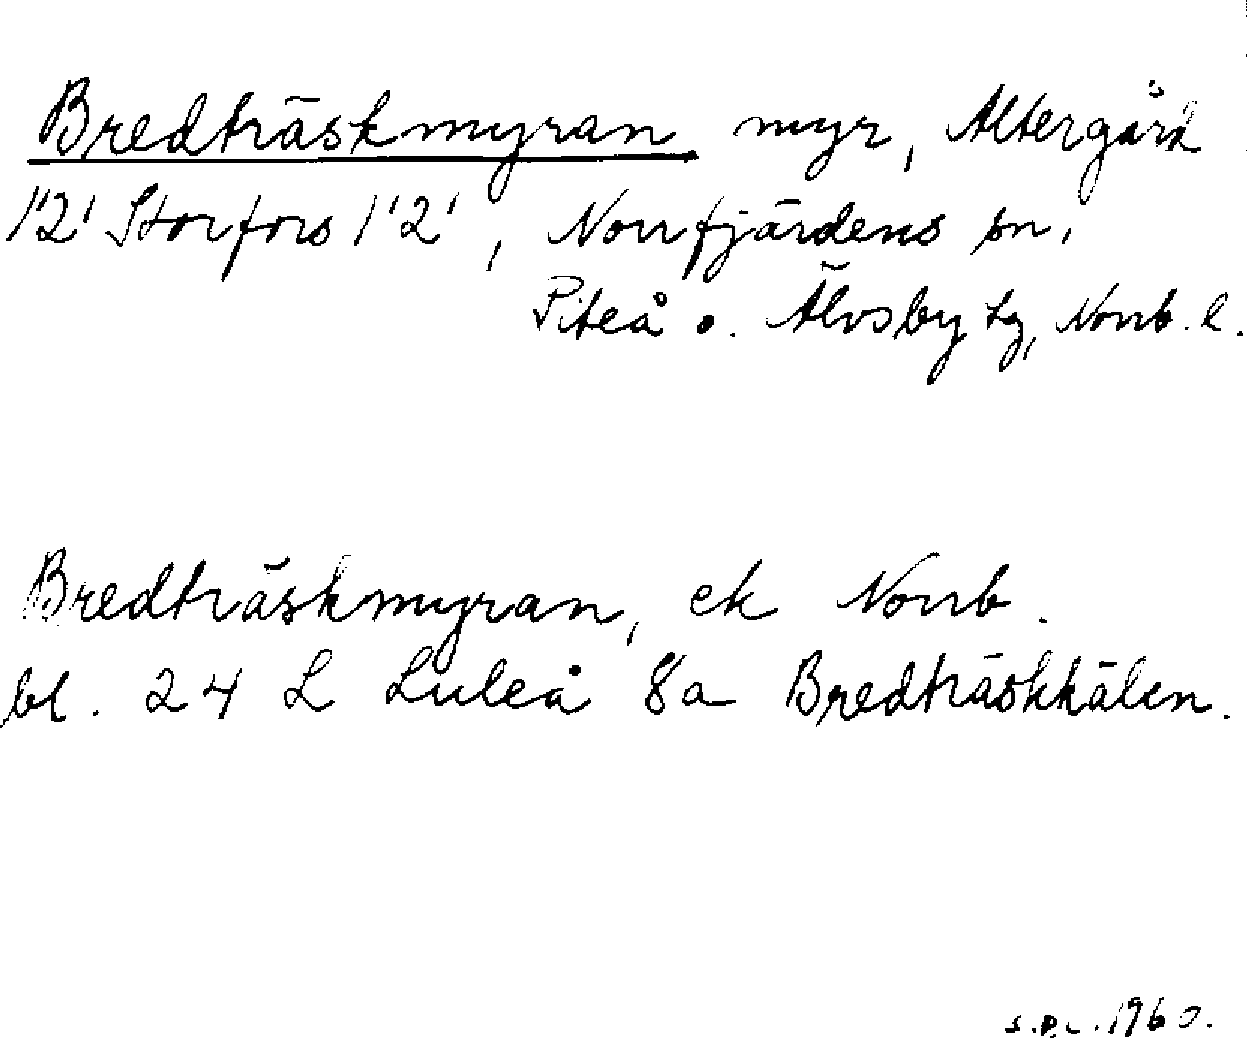 Bredträskmyran myr, Altergård
1'2' Storfors 1'2', Norrfjärdens sn,
Piteå o. Älvsby tg, Norrb. l.
Bredträskmyran, ek Norrb.
bl. 24 L Luleå 8a Bredträskkälen.
1960.